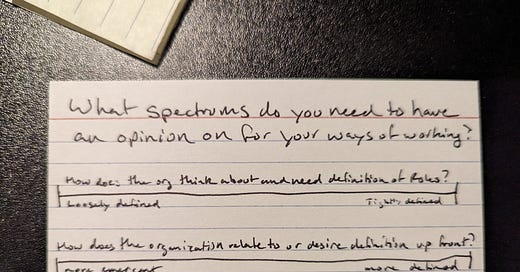 What spectrums do you need to have
an opinion on for your ways of working?
How does the org think about and need definition of Roles?
Loosely defined Tightly defined
How does the organization relate to or desire definition up front?
more emergent more defined